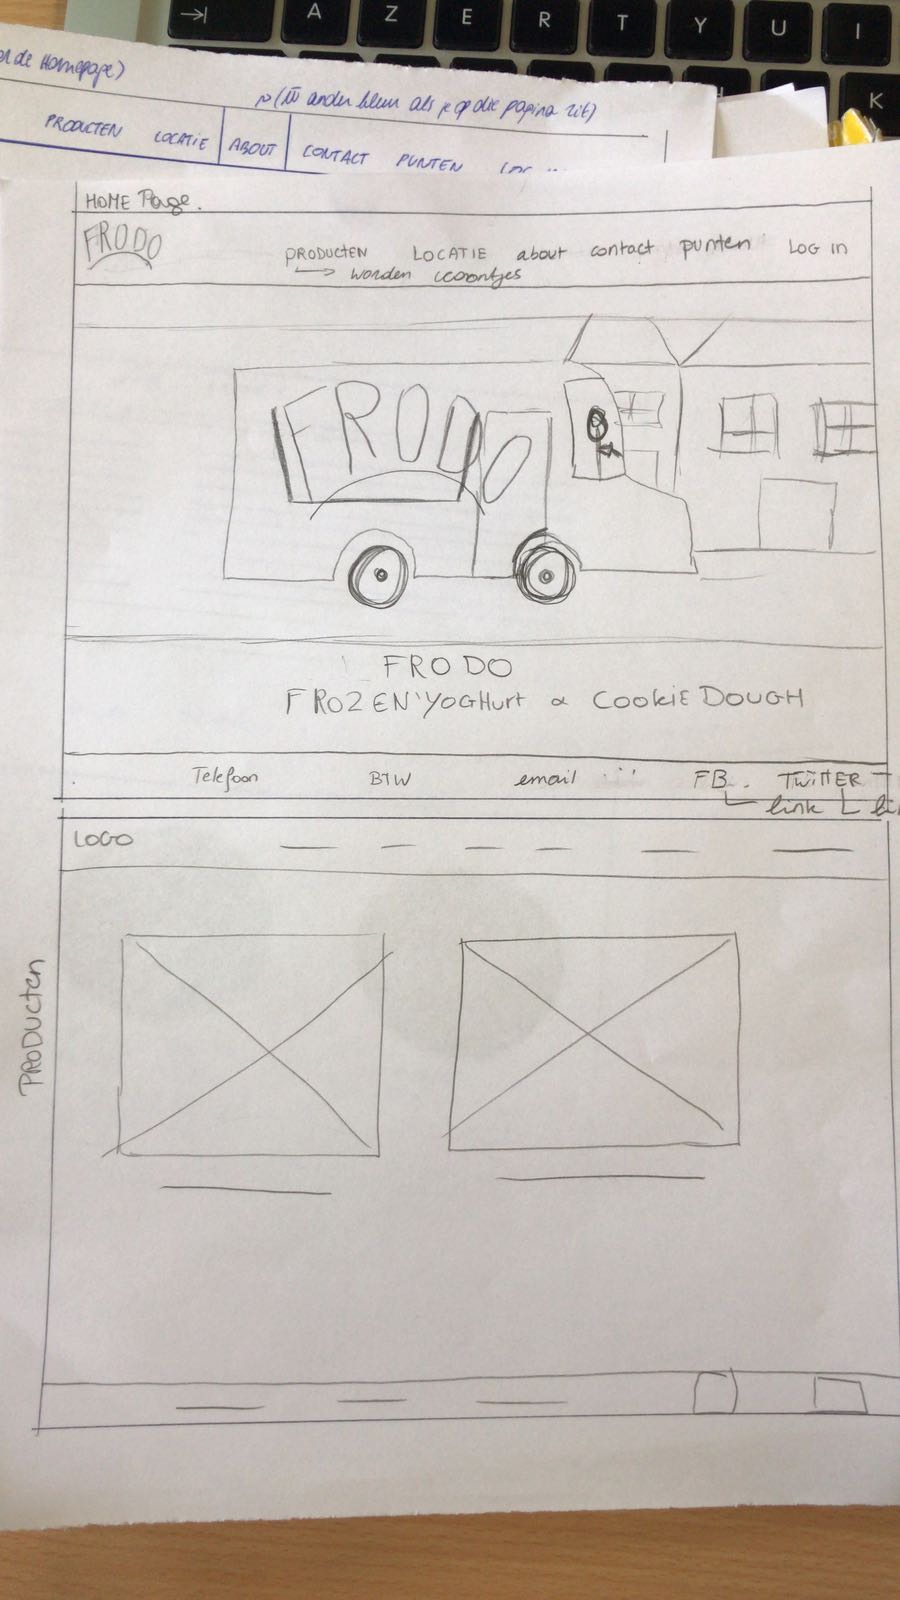 A Z E R T Y U I
K
de Homepage)
(in ander kleur als je op die pagina zit)
PRODUCTEN LOCATIE ABOUT CONTACT PUNTEN
HOME Page.
FRODO
PRODUCTEN LOCATIE about contact punten LOG in
worden icoontjes
FRODO
FRODO
FROZEN YOGHurt & COOKIE DOUGH
Telefoon BTW email ... FB. TWITTER
link
LOGO
PRODUCTEN